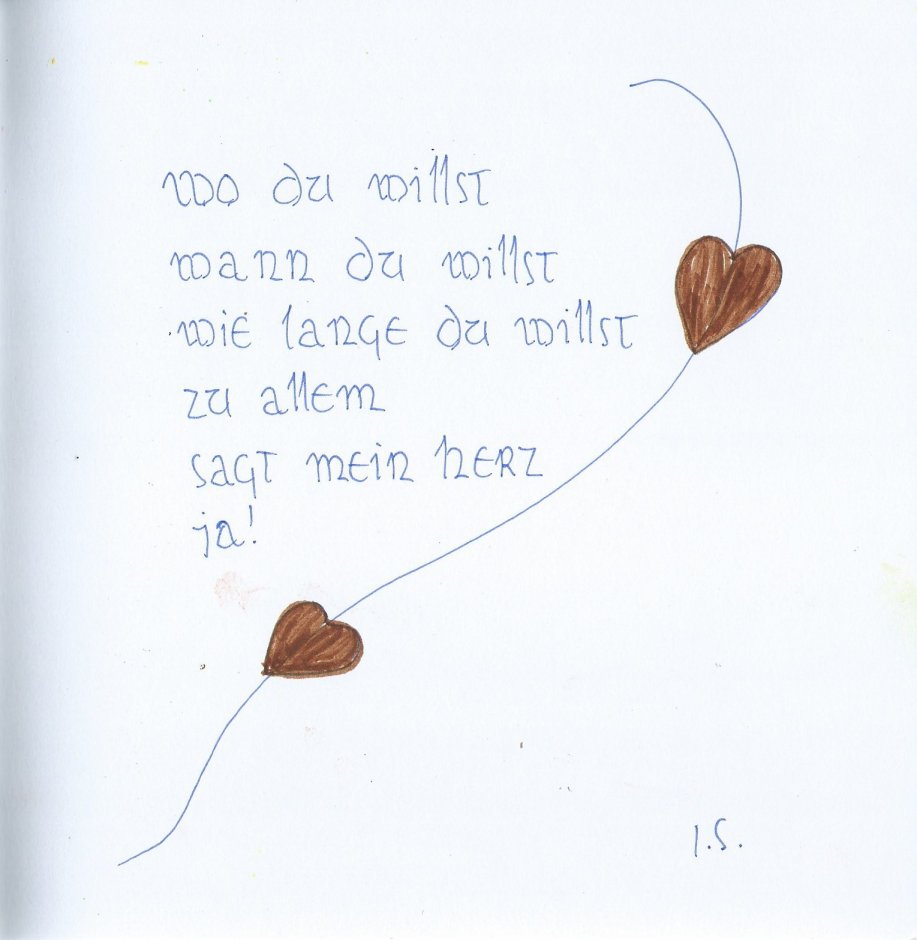 wo du willst
wann du willst
wie lange du willst
zu allem
sagt mein herz
ja!
I.S.